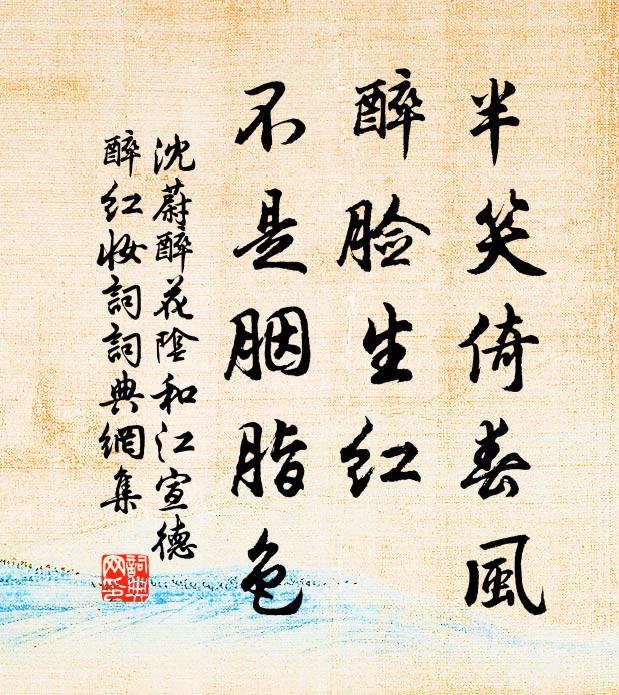 半笑倚春風
醉脸生红
不是胭脂色
沈蔚醉花陰和江宣德
醉红妆詞詞典網集
詞典
网